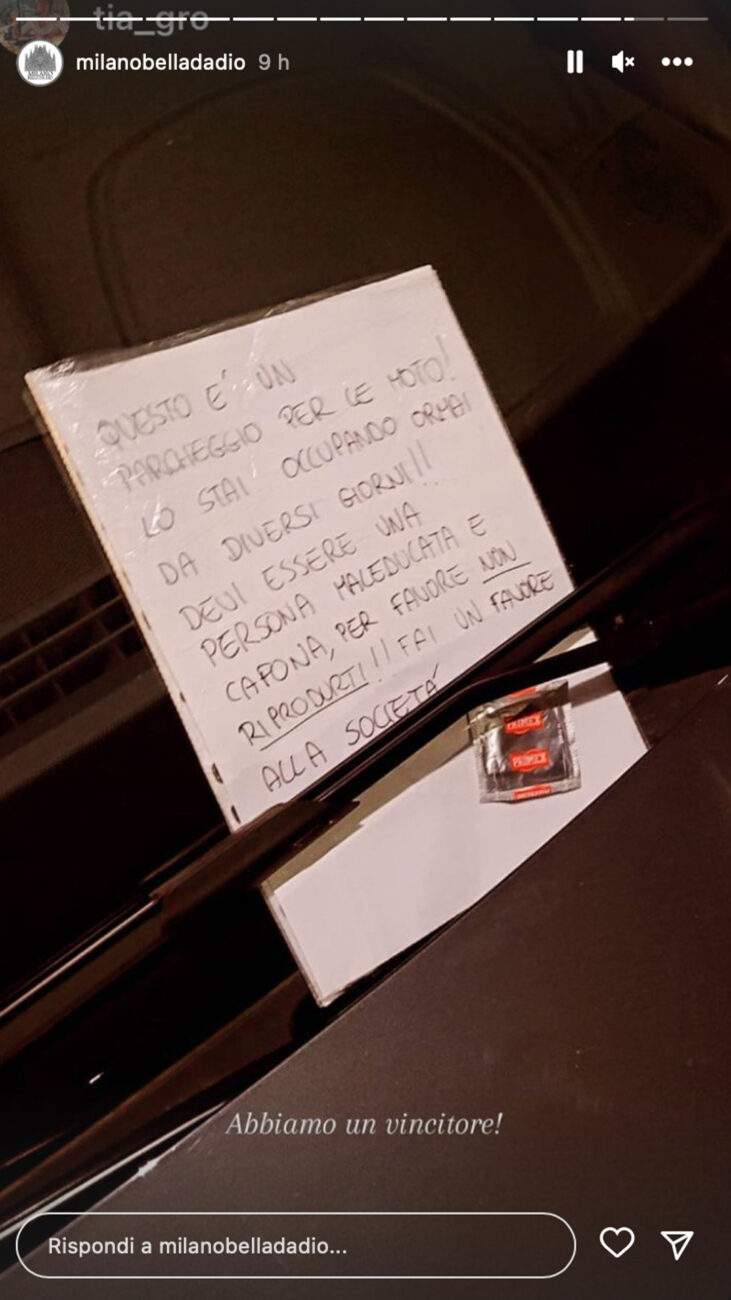 tia_gro
milanobelladadio 9 h
QUESTO E' UN
PARCHEGGIO PER LE MOTO!
LO STAI OCCUPANDO ORMAI
DA DIVERSI GIORNI!!
DEVI ESSERE UNA
PERSONA MALEDUCATA E
CAFONA, PER FAVORE NON
RIPRODURTI!! FAI UN FAVORE
ALLA SOCIETÁ
PRIMEX
PRIMEX
Abbiamo un vincitore!
Rispondi a milanobelladadio...